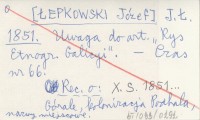 [ŁEPKOWSKI Józef] J.Ł.
1851. Uwaga do art. "Rys
Etnogr. Galicji". — Czas
nr 66.
Rec. o: X. S. 1851...
Górale, kolonizacja Podhala,
nazwy miejscowe.